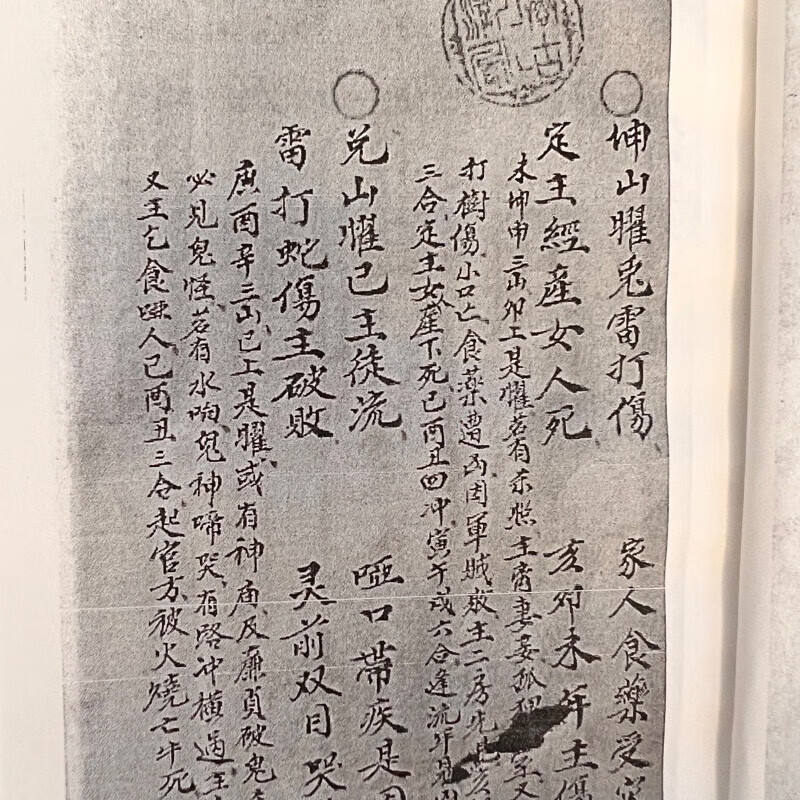 坤山曜兎雷打傷 家人食藥受
定主經産女人死 亥卯未年主傷
未坤申三山卯上是曜若有 照主 妻妾孤 又
打樹傷小口亡食藥遭凶因軍賊敗主二房先見
三合定主女人産下死巳酉丑四冲寅午戌六合逢流年見
兌山曜巳主徒流 啞口帶疾是因
雷打蛇傷主破敗 灵前双目哭
庚酉辛三山巳上是曜或有神庙及廉貞破鬼
必見鬼怪若有水响鬼神啼哭有路冲橫過主
又主乞食啞人巳酉丑三合起官方被火燒亡牛死